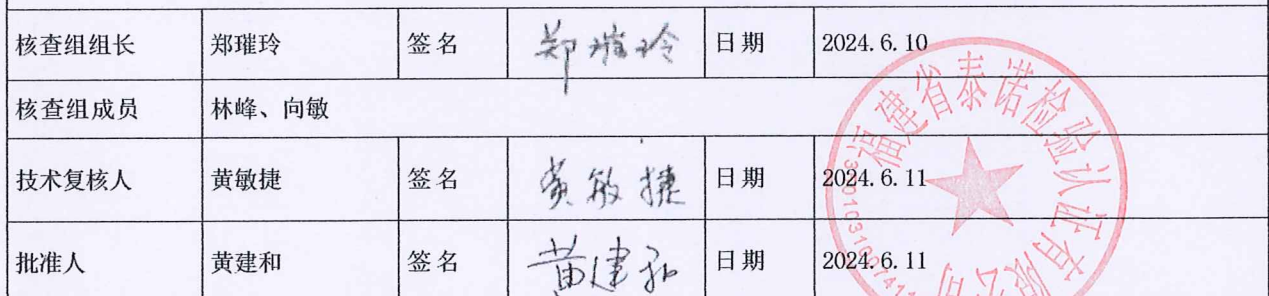 核查组组长 郑璀玲 签名 郑璀玲 日期 2024.6.10
核查组成员 林峰、向敏
技术复核人 黄敏捷 签名 黄敏捷 日期 2024.6.11
批准人 黄建和 签名 黄建和 日期 2024.6.11
福建省泰诺检验认证有限公司